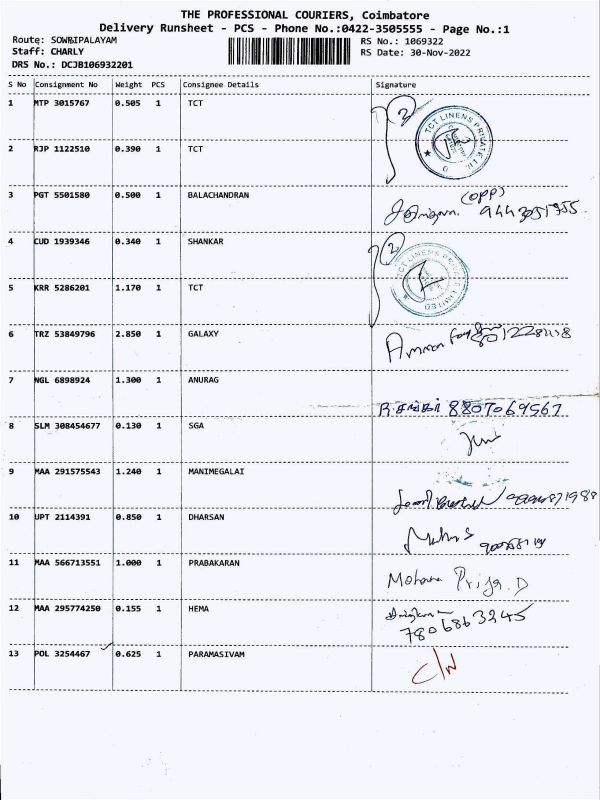 THE PROFESSIONAL COURIERS, Coimbatore
Delivery Runsheet - PCS - Phone No.:0422-3505555 - Page No.:1
Route: SOWRIPALAYAM
RS No.: 1069322
Staff: CHARLY
RS Date: 30-Nov-2022
DRS No.: DCJB106932201
S No Consignment No Weight PCS Consignee Details Signature
1 MTP 3015767 0.505 1 TCT 2
TCT LINENS PRIVATE
2 RJP 1122510 0.390 1 TCT
3 PGT 5501580 0.500 1 BALACHANDRAN (OPP)
4 CUD 1939346 0.340 1 SHANKAR 2
TCT LINENS PRIVATE LIMITED
5 KRR 5286201 1.170 1 TCT
6 TRZ 53849796 2.850 1 GALAXY
7 NGL 6898924 1.300 1 ANURAG
8807069567
8 SLM 308454677 0.130 1 SGA
9 MAA 291575543 1.240 1 MANIMEGALAI
10 UPT 2114391 0.850 1 DHARSAN
11 MAA 566713551 1.000 1 PRABAKARAN Mohana Priya.D
12 MAA 295774250 0.155 1 HEMA
7806863245
13 POL 3254467 0.625 1 PARAMASIVAM C/N